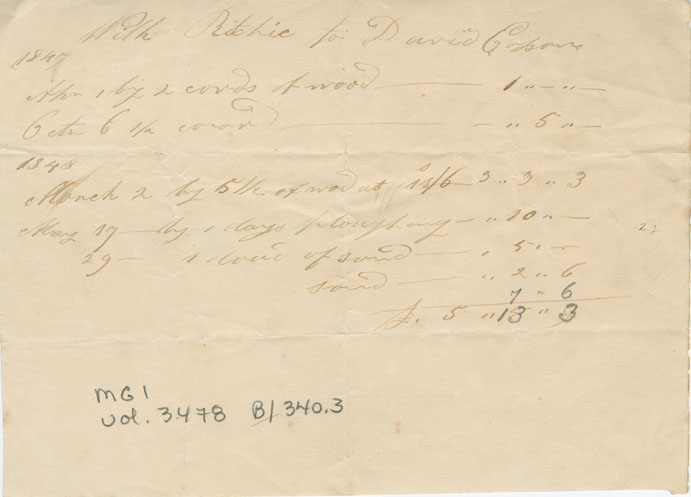 With Ritchie to David
1847
Apr 1 by 2 cords of wood — 1 „ – „ –
Octr 6 1/2 coard — – „ 5 „ –
1848
March 2 by 5 1/2 of wod at 11/6 – 3 „ 3 „ 3
May 17 – by 1 days ploughing – „ 10 „ –
29 – 1 load of sand — „ 5 „ –
sand — „ 2 „ 6
7 „ 6
£. 5 „ 13 „ 3
MG1
vol. 3478 B/340.3